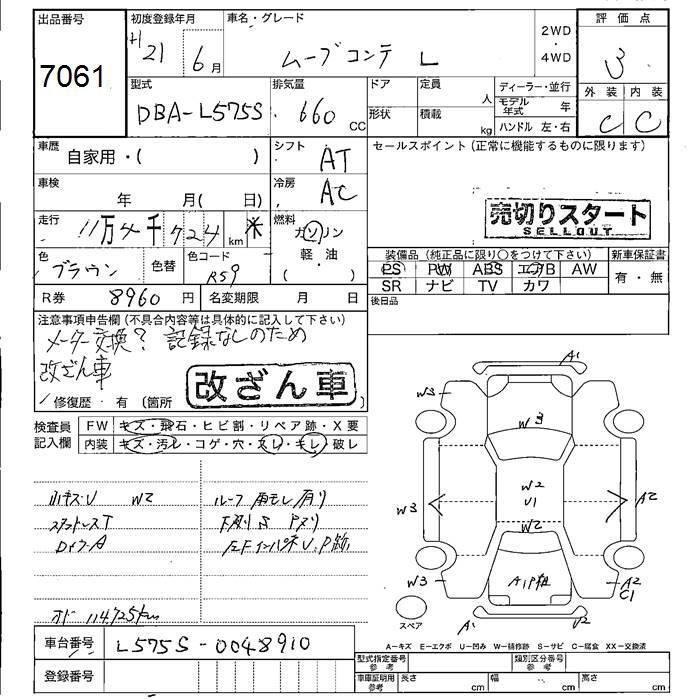 出品番号 初度登録年月 車名・グレード 2WD ・ 4WD 評価点
7061 H21 6月 ムーブコンテ L 3
型式 排気量 ドア 定員 人 ディーラー・並行 外装 内装
DBA-L575S 660 CC 形状 積載 kg モデル年式 年 C C
ハンドル 左・右
車歴 自家用・( ) シフト AT セールスポイント (正常に機能するものに限ります)
車検 年 月( 日) 冷房 AC
売切りスタート
SELLOUT
走行 11万4千724 km * 燃料 ガソリン
( 軽・油 )
色 ブラウン 色替 色コード R59
装備品 (純正品に限り○をつけて下さい) 新車保証書
PS PW ABS エアB AW 有・無
SR ナビ TV カワ
R券 8960円 名変期限 月 日 後日品
注意事項申告欄 (不具合内容等は具体的に記入して下さい)
メーター交換? 記録なしのため
改ざん車
改ざん車
修復歴・有 (箇所
検査員記入欄 FW キズ・飛石・ヒビ割・リペア跡・X要
内装 キズ・汚レ・コゲ・穴・スレ・キレ・破レ
小キズ・U W2 ルーフ 雨モレ有り
スタットレスT 下廻りS Pヌリ
DドアA 左Fインパネ U、P飾
オド 114,725km
A1
W3
W3
W2
U1
W3 A2
W2
W3 A1P粗 A2
C1
スペア A1 U2
A−キズ E−エクボ U−凹み W−補修跡 S−サビ C−腐食 XX−交換済
車台番号 L575S-0048910
型式指定番号 参考 類別区分番号 参考
登録番号 車庫証明用 参考 長さ cm 幅 cm 高さ cm